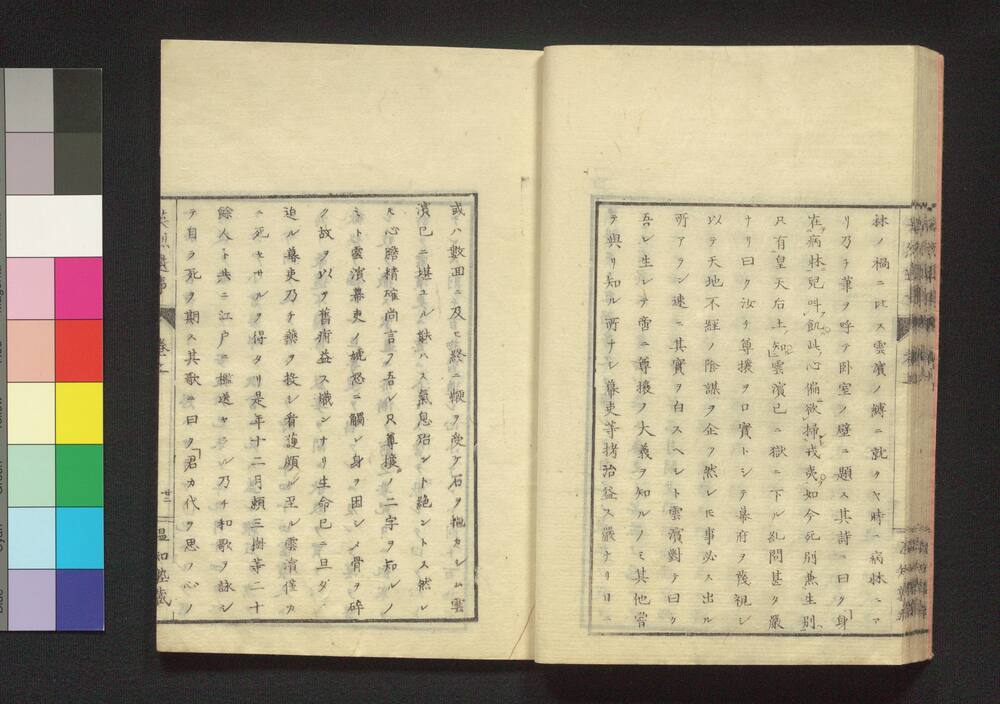 牀ノ禍ニ比ス雲濱ノ縛ニ就クヤ時ニ病牀ニア
リ乃チ筆ヲ呼テ臥室ノ壁ニ題ス其詩ニ曰ク身
在病牀兒叫飢此心偏欲掃戎夷如今死別兼生別
只有皇天后土知雲濱已ニ獄ニ下ル乱問甚タ嚴
ナリ曰ク汝チ尊攘ヲ口實トシテ幕府ヲ蔑視シ
以テ天地不經ノ陰謀ヲ企フ然レ𪜈事必ス出ル
所アラン速ニ其實ヲ白スヘシト雲濱對テ曰ク
吾レ生レテ啻ニ尊攘ノ大義ヲ知ルノミ其他嘗
テ與リ知ル所ナシ幕吏等拷治益ス嚴ナリ日ニ
或ハ數囬ニ及ヒ終ニ鞭ヲ受ケ石ヲ抱カシム雲
濱已ニ堪ユル能ハス氣息殆ント絶ントス然レ
𪜈心膽精確尚言フ吾レ只尊攘ノ二字ヲ知ルノ
ミト雲濱幕吏ノ掟怒ニ觸レ身ヲ困シメ骨ヲ碎
ク故ヲ以テ舊痾益ス熾ンナリ生命已ニ旦ダニ
迫ル幕吏乃チ藥ヲ投シ看護頗ル至ル雲濱僅カ
ニ死セサルヲ得タリ是年十二月頼三樹等二十
餘人ト共ニ江戸ニ檻送セラル乃チ和歌ヲ詠シ
テ自ラ死ヲ期ス其歌ニ曰ク「君カ代ヲ思フ心ノ
英烈遺事
卷二
廿二
温知塾藏